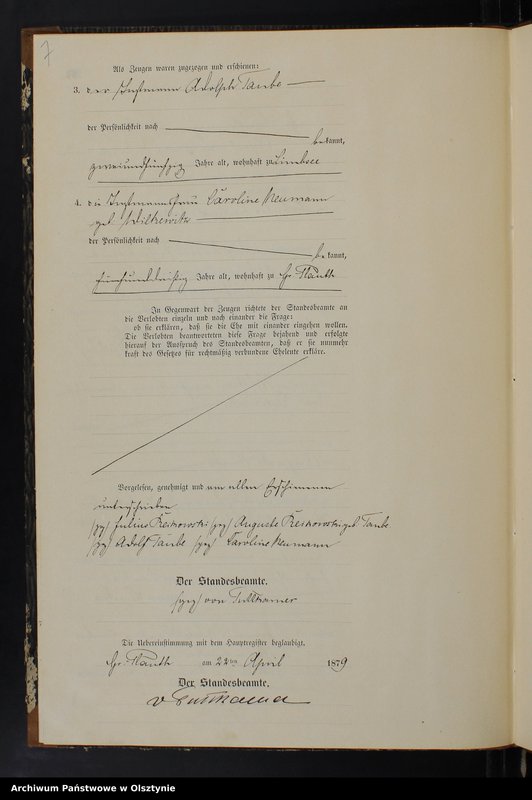 7
Als Zeugen waren zugezogen und erschienen:
3. der Instmann Adolph Taube
der Persönlichkeit nach
bekannt,
zweiundfünfzig Jahre alt, wohnhaft zu Limbsee
4. die Instmannsfrau Caroline Neumann
geb.
der Persönlichkeit nach
bekannt,
fünfunddreißig Jahre alt, wohnhaft zu Gr. Plauth
In Gegenwart der Zeugen richtete der Standesbeamte an
die Verlobten einzeln und nach einander die Frage:
ob sie erklären, daß sie die Ehe mit einander eingehen wollen.
Die Verlobten beantworteten diese Frage bejahend und erfolgte
hierauf der Ausspruch des Standesbeamten, daß er sie nunmehr
kraft des Gesetzes für rechtmäßig verbundene Eheleute erkläre.
Vorgelesen, genehmigt und von allen Erschienenen
unterschrieben
Julius Auguste geb. Taube
Adolf Taube Caroline Neumann
Der Standesbeamte.
von
Die Uebereinstimmung mit dem Hauptregister beglaubigt.
Gr. Plauth am 22ten April 1879
Der Standesbeamte.
v.
Archiwum Państwowe w Olsztynie